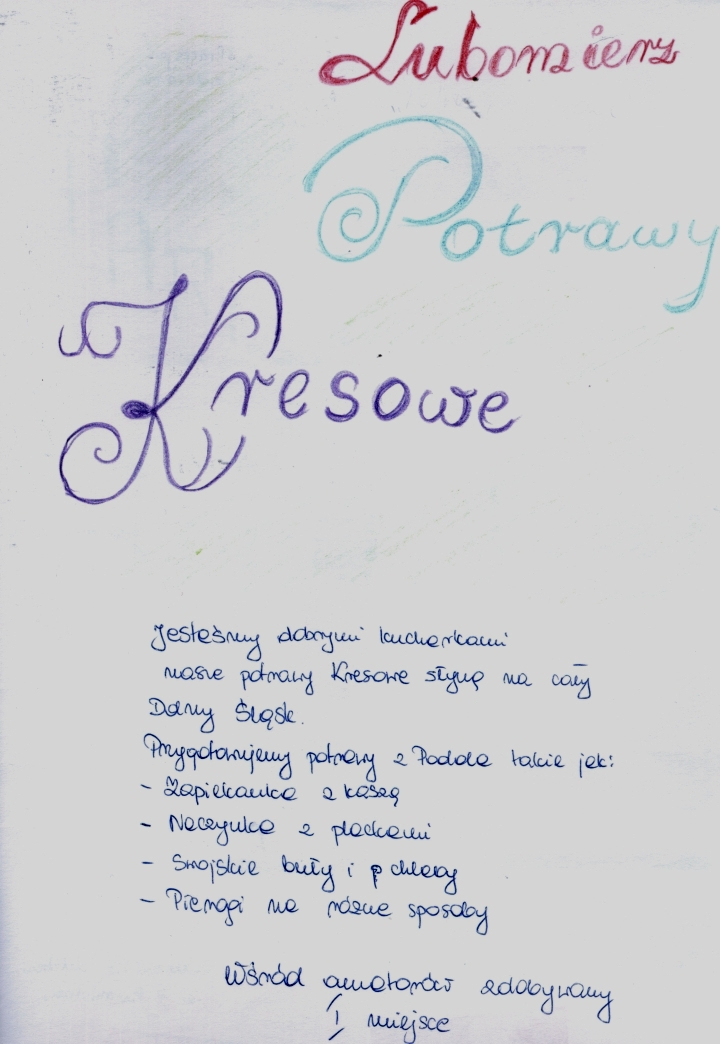 Lubomierz
Potrawy
Kresowe
Jesteśmy dobrymi kucharkami
nasze potrawy Kresowe słyną na cały
Dolny Śląsk.
Przygotowujemy potrawy z Podola takie jak:
- Zapiekanka z kaszą
- Naczynka z plackami
- Swojskie buły i chleby
- Pierogi na różne sposoby
Wśród amatorów zdobywamy
I miejsce